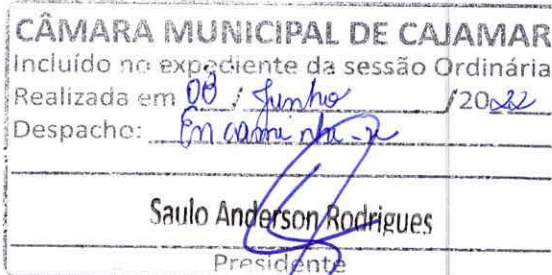 CÂMARA MUNICIPAL DE CAJAMAR
Incluído no expediente da sessão Ordinária
Realizada em 08 / Junho /2022
Despacho: Encaminha-se
Saulo Anderson Rodrigues
Presidente